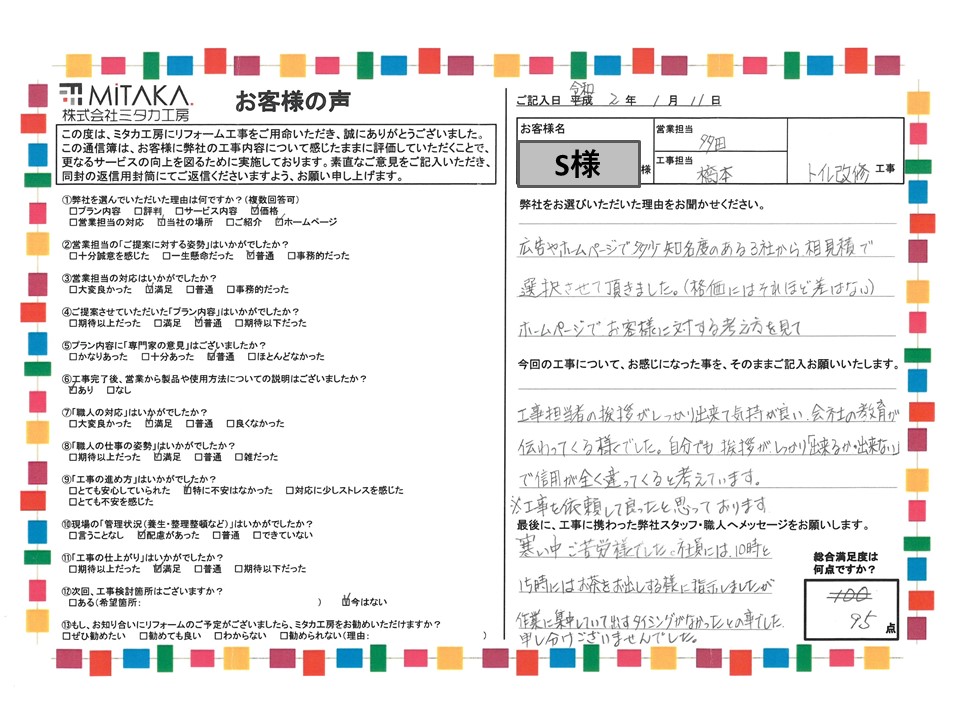 MiTAKA
株式会社ミタカ工房
お客様の声
この度は、ミタカ工房にリフォーム工事をご用命いただき、誠にありがとうございました。
この通信簿は、お客様に弊社の工事内容について感じたままに評価していただくことで、
更なるサービスの向上を図るために実施しております。素直なご意見をご記入いただき、
同封の返信用封筒にてご返信くださいますよう、お願い申し上げます。
①弊社を選んでいただいた理由は何ですか？(複数回答可)
□プラン内容 □評判 □サービス内容 ☑価格
□営業担当の対応 ☑当社の場所 □ご紹介 ☑ホームページ
②営業担当の「ご提案に対する姿勢」はいかがでしたか？
□十分誠意を感じた □一生懸命だった ☑普通 □事務的だった
③営業担当の対応はいかがでしたか？
□大変良かった ☑満足 □普通 □事務的だった
④ご提案させていただいた「プラン内容」はいかがでしたか？
□期待以上だった □満足 ☑普通 □期待以下だった
⑤プラン内容に「専門家の意見」はございましたか？
□かなりあった □十分あった ☑普通 □ほとんどなかった
⑥工事完了後、営業から製品や使用方法についての説明はございましたか？
☑あり □なし
⑦「職人の対応」はいかがでしたか？
□大変良かった ☑満足 □普通 □良くなかった
⑧「職人の仕事の姿勢」はいかがでしたか？
□期待以上だった ☑満足 □普通 □雑だった
⑨「工事の進め方」はいかがでしたか？
□とても安心していられた ☑特に不安はなかった □対応に少しストレスを感じた
□とても不安を感じた
⑩現場の「管理状況(養生・整理整頓など)」はいかがでしたか？
□言うことなし ☑配慮があった □普通 □できていない
⑪「工事の仕上がり」はいかがでしたか？
□期待以上だった ☑満足 □普通 □期待以下だった
⑫次回、工事検討箇所はございますか？
□ある(希望箇所: ) ☑今はない
⑬もし、お知り合いにリフォームのご予定がございましたら、ミタカ工房をお勧めいただけますか？
□ぜひ勧めたい □勧めても良い □わからない □勧められない(理由: )
令和
ご記入日 平成 2 年 1 月 11 日
お客様名 S様 様
営業担当 多田
工事担当 橋本
トイレ改修 工事
弊社をお選びいただいた理由をお聞かせください。
広告やホームページで多少知名度のある3社から相見積で
選択させて頂きました。(格価にはそれほど差はない)
ホームページでお客様に対する考え方を見て
今回の工事について、お感じになった事を、そのままご記入お願いいたします。
工事担当者の挨拶がしっかり出来て気持が良い、会社の教育が
伝わってくる様でした。自分でも挨拶がしっかり「出来るか・出来ない」
で信用が全く違ってくると考えています。
※工事を依頼して良ったと思っております
最後に、工事に携わった弊社スタッフ・職人へメッセージをお願いします。
寒い中ご苦労様でした。社員には、10時と
15時にはお茶をお出しする様に指示しましたが
作業に集中していて出すタイミングがなかったとの事でした
申し分けございませんでした。
総合満足度は
何点ですか？
100
95 点